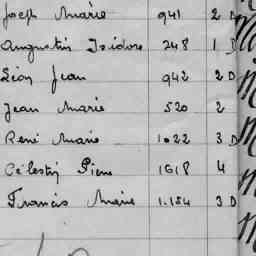 Joseph Marie 941 2 D
Augustin Isidore 248 1 D
Léon Jean 942 2 D
Jean Marie 520 2
René Marie 1022 3 D
Célestin Pierre 1618 4
Francis Marie 1.154 3 D